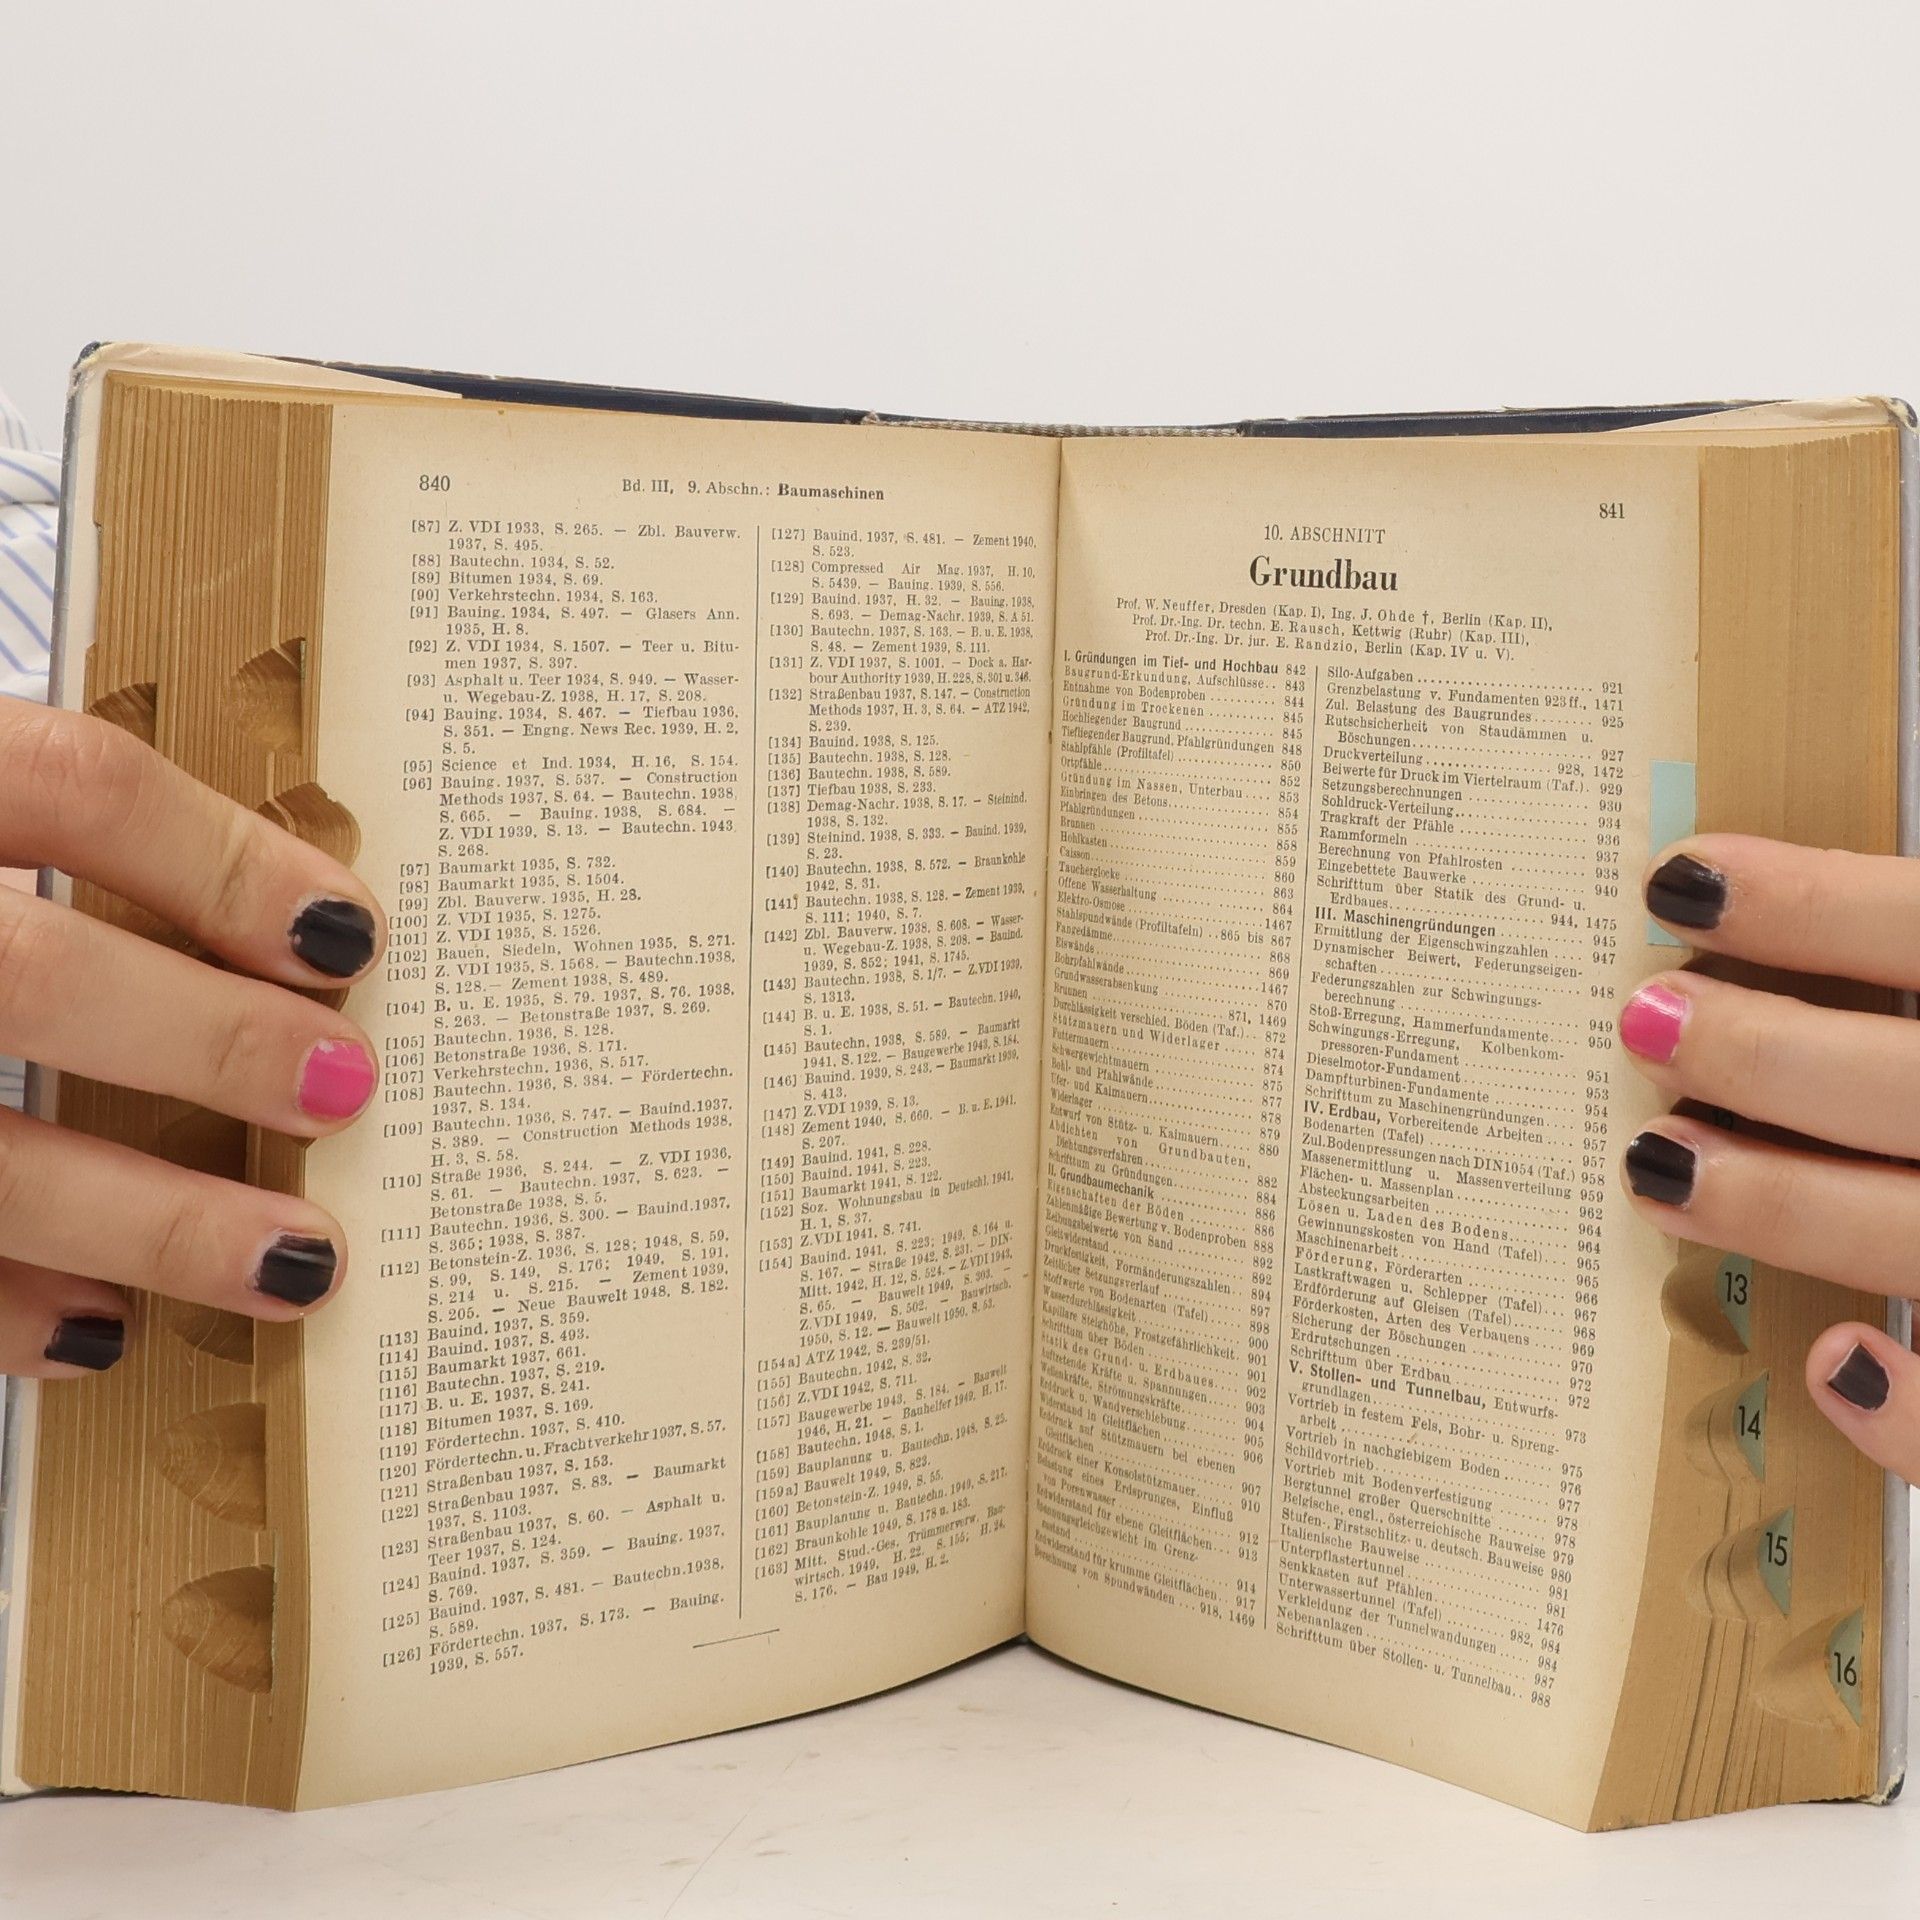 840
Bd. III, 9. Abschn.: Baumaschinen
[87] Z. VDI 1933, S. 265. — Zbl. Bauverw.
1937, S. 495.
[88] Bautechn. 1934, S. 52.
[89] Bitumen 1934, S. 69.
[90] Verkehrstechn. 1934, S. 163.
[91] Bauing. 1934, S. 497. — Glasers Ann.
1935, H. 8.
[92] Z. VDI 1934, S. 1507. — Teer u. Bitu-
men 1937, S. 397.
[93] Asphalt u. Teer 1934, S. 949. — Wasser-
u. Wegebau-Z. 1938, H. 17, S. 208.
[94] Bauing. 1934, S. 467. — Tiefbau 1936,
S. 351. — Engng. News Rec. 1939, H. 2,
S. 5.
[95] Science et Ind. 1934, H. 16, S. 154.
[96] Bauing. 1937, S. 537. — Construction
Methods 1937, S. 64. — Bautechn. 1938,
S. 665. — Bauing. 1938, S. 684. —
Z. VDI 1939, S. 13. — Bautechn. 1943
S. 268.
[97] Baumarkt 1935, S. 732.
[98] Baumarkt 1935, S. 1504.
[99] Zbl. Bauverw. 1935, H. 28.
[100] Z. VDI 1935, S. 1275.
[101] Z. VDI 1935, S. 1526.
[102] Bauen, Siedeln, Wohnen 1935, S. 271.
[103] Z. VDI 1935, S. 1568. — Bautechn.1938,
S. 128.— Zement 1938, S. 489.
[104] B. u. E. 1935, S. 79. 1937, S. 76. 1938,
S. 263. — Betonstraße 1937, S. 269.
[105] Bautechn. 1936, S. 128.
[106] Betonstraße 1936, S. 171.
[107] Verkehrstechn. 1936, S. 517.
[108] Bautechn. 1936, S. 384. — Fördertechn.
1937, S. 134.
[109] Bautechn. 1936, S. 747. — Bauind.1937,
S. 389. — Construction Methods 1938,
H. 3, S. 58.
[110] Straße 1936, S. 244. — Z. VDI 1936,
S. 61. — Bautechn. 1937, S. 623. —
Betonstraße 1938, S. 5.
[111] Bautechn. 1936, S. 300. — Bauind.1937,
S. 365; 1938, S. 387.
[112] Betonstein-Z. 1936, S. 128; 1948, S. 59,
S. 99, S. 149, S. 176; 1949, S. 191,
S. 214 u. S. 215. — Zement 1939,
S. 205. — Neue Bauwelt 1948, S. 182.
[113] Bauind. 1937, S. 359.
[114] Bauind. 1937, S. 493.
[115] Baumarkt 1937, 661.
[116] Bautechn. 1937, S. 219.
[117] B. u. E. 1937, S. 241.
[118] Bitumen 1937, S. 169.
[119] Fördertechn. 1937, S. 410.
[120] Fördertechn. u. Frachtverkehr 1937, S. 57.
[121] Straßenbau 1937, S. 153.
[122] Straßenbau 1937, S. 83. — Baumarkt
1937, S. 1103.
[123] Straßenbau 1937, S. 60. — Asphalt u.
Teer 1937, S. 124.
[124] Bauind. 1937, S. 359. — Bauing. 1937,
S. 769.
[125] Bauind. 1937, S. 481. — Bautechn.1938,
S. 589.
[126] Fördertechn. 1937, S. 173. — Bauing.
1939, S. 557.
[127] Bauind. 1937, S. 481. — Zement 1940,
S. 523.
[128] Compressed Air Mag. 1937, H. 10,
S. 5439. — Bauing. 1939, S. 556.
[129] Bauind. 1937, H. 32. — Bauing. 1938,
S. 693. — Demag-Nachr. 1939, S. A 51.
[130] Bautechn. 1937, S. 163. — B. u. E. 1938,
S. 48. — Zement 1939, S. 111.
[131] Z. VDI 1937, S. 1001. — Dock a. Har-
bour Authority 1939, H. 228, S. 301 u. 346.
[132] Straßenbau 1937, S. 147. — Construction
Methods 1937, H. 3, S. 64. — ATZ 1942,
S. 239.
[134] Bauind. 1938, S. 125.
[135] Bautechn. 1938, S. 128.
[136] Bautechn. 1938, S. 589.
[137] Tiefbau 1938, S. 233.
[138] Demag-Nachr. 1938, S. 17. — Steinind.
1938, S. 132.
[139] Steinind. 1938, S. 333. — Bauind. 1939,
S. 23.
[140] Bautechn. 1938, S. 572. — Braunkohle
1942, S. 31.
[141] Bautechn. 1938, S. 128. — Zement 1939,
S. 111; 1940, S. 7.
[142] Zbl. Bauverw. 1938, S. 608. — Wasser-
u. Wegebau-Z. 1938, S. 208. — Bauind.
1939, S. 852; 1941, S. 1745.
[143] Bautechn. 1938, S. 1/7. — Z.VDI 1939,
S. 1313.
[144] B. u. E. 1938, S. 51. — Bautechn. 1940,
S. 1.
[145] Bautechn. 1938, S. 589. — Baumarkt
1941, S. 122. — Baugewerbe 1943, S. 184.
[146] Bauind. 1939, S. 243. — Baumarkt 1939,
S. 413.
[147] Z.VDI 1939, S. 13.
[148] Zement 1940, S. 660. — B. u. E. 1941,
S. 207.
[149] Bauind. 1941, S. 228.
[150] Bauind. 1941, S. 223.
[151] Baumarkt 1941, S. 122.
[152] Soz. Wohnungsbau in Deutschl. 1941,
H. 1, S. 37.
[153] Z.VDI 1941, S. 741.
[154] Bauind. 1941, S. 223; 1949, S. 164 u.
S. 167. — Straße 1942, S. 231. — DIN-
Mitt. 1942, H. 12, S. 524. — Z.VDI 1943,
S. 65. — Bauwelt 1949, S. 303. —
Z.VDI 1949, S. 502. — Bauwirtsch.
1950, S. 12. — Bauwelt 1950, S. 53.
[154a] ATZ 1942, S. 239/51.
[155] Bautechn. 1942, S. 32.
[156] Z.VDI 1942, S. 711.
[157] Baugewerbe 1943, S. 184. — Bauwelt
1946, H. 21. — Bauhelfer 1949, H. 17.
[158] Bautechn. 1948, S. 1.
[159] Bauplanung u. Bautechn. 1948, S. 25.
[159a] Bauwelt 1949, S. 823.
[160] Betonstein-Z. 1949, S. 55.
[161] Bauplanung u. Bautechn. 1949, S. 217.
[162] Braunkohle 1949, S. 178 u. 183.
[163] Mitt. Stud.-Ges. Trümmerverw. Bau-
wirtsch. 1949, H. 22. S. 155; H. 24,
S. 176. — Bau 1949, H. 2.
841
10. ABSCHNITT
Grundbau
Prof. W. Neuffer, Dresden (Kap. I), Ing. J. Ohde †, Berlin (Kap. II),
Prof. Dr.-Ing. Dr. techn. E. Rausch, Kettwig (Ruhr) (Kap. III),
Prof. Dr.-Ing. Dr. jur. E. Randzio, Berlin (Kap. IV u. V).
I. Gründungen im Tief- und Hochbau 842
Baugrund-Erkundung, Aufschlüsse.. 843
Entnahme von Bodenproben ........ 844
Gründung im Trockenen .......... 845
Hochliegender Baugrund ........ 845
Tiefliegender Baugrund, Pfahlgründungen 848
Stahlpfähle (Profiltafel) ........ 850
Ortpfähle ........ 852
Gründung im Nassen, Unterbau .... 853
Einbringen des Betons ........ 854
Pfahlgründungen ........ 855
Brunnen ........ 858
Hohlkasten ........ 859
Caisson ........ 860
Taucherglocke ........ 863
Offene Wasserhaltung ........ 864
Elektro-Osmose ........ 1467
Stahlspundwände (Profiltafeln) ..865 bis 867
Fangedämme ........ 868
Eiswände ........ 869
Bohrpfahlwände ........ 1467
Grundwasserabsenkung ........ 870
Brunnen ........ 871, 1469
Durchlässigkeit verschied. Böden (Taf.).. 872
Stützmauern und Widerlager .... 874
Futtermauern ........ 874
Schwergewichtmauern ........ 875
Bohl- und Pfahlwände ........ 877
Ufer- und Kaimauern ........ 878
Widerlager ........ 879
Entwurf von Stütz- u. Kaimauern .... 880
Abdichten von Grundbauten,
Dichtungsverfahren ........ 882
Schrifttum zu Gründungen ........ 884
II. Grundbaumechanik ........ 886
Eigenschaften der Böden ........ 886
Zahlenmäßige Bewertung v. Bodenproben 888
Reibungsbeiwerte von Sand ........ 892
Gleitwiderstand ........ 892
Druckfestigkeit, Formänderungszahlen.. 894
Zeitlicher Setzungsverlauf ........ 897
Stoffwerte von Bodenarten (Tafel) .... 898
Wasserdurchlässigkeit ........ 900
Kapillare Steighöhe, Frostgefährlichkeit. 901
Schrifttum über Böden ........ 901
Statik des Grund- u. Erdbaues.... 902
Auftretende Kräfte u. Spannungen .... 903
Wellenkräfte, Strömungskräfte ........ 904
Erddruck u. Wandverschiebung ........ 905
Widerstand in Gleitflächen ........ 906
Erddruck auf Stützmauern bei ebenen
Gleitflächen ........ 907
Erddruck einer Konsolstützmauer...... 910
Belastung eines Erdsprunges, Einfluß
von Porenwasser ........ 912
Erdwiderstand für ebene Gleitflächen... 913
Spannungsgleichgewicht im Grenz-
zustand ........ 914
Erdwiderstand für krumme Gleitflächen.. 917
Berechnung von Spundwänden ... 918, 1469
Silo-Aufgaben ........ 921
Grenzbelastung v. Fundamenten 923 ff., 1471
Zul. Belastung des Baugrundes ........ 925
Rutschsicherheit von Staudämmen u.
Böschungen ........ 927
Druckverteilung ........ 928, 1472
Beiwerte für Druck im Viertelraum (Taf.). 929
Setzungsberechnungen ........ 930
Sohldruck-Verteilung ........ 934
Tragkraft der Pfähle ........ 936
Rammformeln ........ 937
Berechnung von Pfahlrosten ........ 938
Eingebettete Bauwerke ........ 940
Schrifttum über Statik des Grund- u.
Erdbaues ........ 944, 1475
III. Maschinengründungen ........ 945
Ermittlung der Eigenschwingzahlen .... 947
Dynamischer Beiwert, Federungseigen-
schaften ........ 948
Federungszahlen zur Schwingungs-
berechnung ........ 949
Stoß-Erregung, Hammerfundamente.... 950
Schwingungs-Erregung, Kolbenkom-
pressoren-Fundament ........ 951
Dieselmotor-Fundament ........ 953
Dampfturbinen-Fundamente ........ 954
Schrifttum zu Maschinengründungen.... 956
IV. Erdbau, Vorbereitende Arbeiten .... 957
Bodenarten (Tafel) ........ 957
Zul.Bodenpressungen nach DIN1054 (Taf.) 958
Massenermittlung u. Massenverteilung 959
Flächen- u. Massenplan ........ 962
Absteckungsarbeiten ........ 964
Lösen u. Laden des Bodens........ 964
Gewinnungskosten von Hand (Tafel)... 965
Maschinenarbeit ........ 965
Förderung, Förderarten ........ 966
Lastkraftwagen u. Schlepper (Tafel)... 967
Erdförderung auf Gleisen (Tafel)...... 968
Förderkosten, Arten des Verbauens .... 969
Sicherung der Böschungen ........ 970
Erdrutschungen ........ 972
Schrifttum über Erdbau ........ 972
V. Stollen- und Tunnelbau, Entwurfs-
grundlagen ........ 973
Vortrieb in festem Fels, Bohr- u. Spreng-
arbeit ........ 975
Vortrieb in nachgiebigem Boden ........ 976
Schildvortrieb ........ 977
Vortrieb mit Bodenverfestigung ........ 978
Bergtunnel großer Querschnitte ........ 978
Belgische, engl., österreichische Bauweise 979
Stufen-, Firstschlitz- u. deutsch. Bauweise 980
Italienische Bauweise ........ 981
Unterpflastertunnel ........ 981
Senkkasten auf Pfählen ........ 1476
Unterwassertunnel (Tafel) ........ 982, 984
Verkleidung der Tunnelwandungen ..... 984
Nebenanlagen ........ 987
Schrifttum über Stollen- u. Tunnelbau.. 988
13
14
15
16